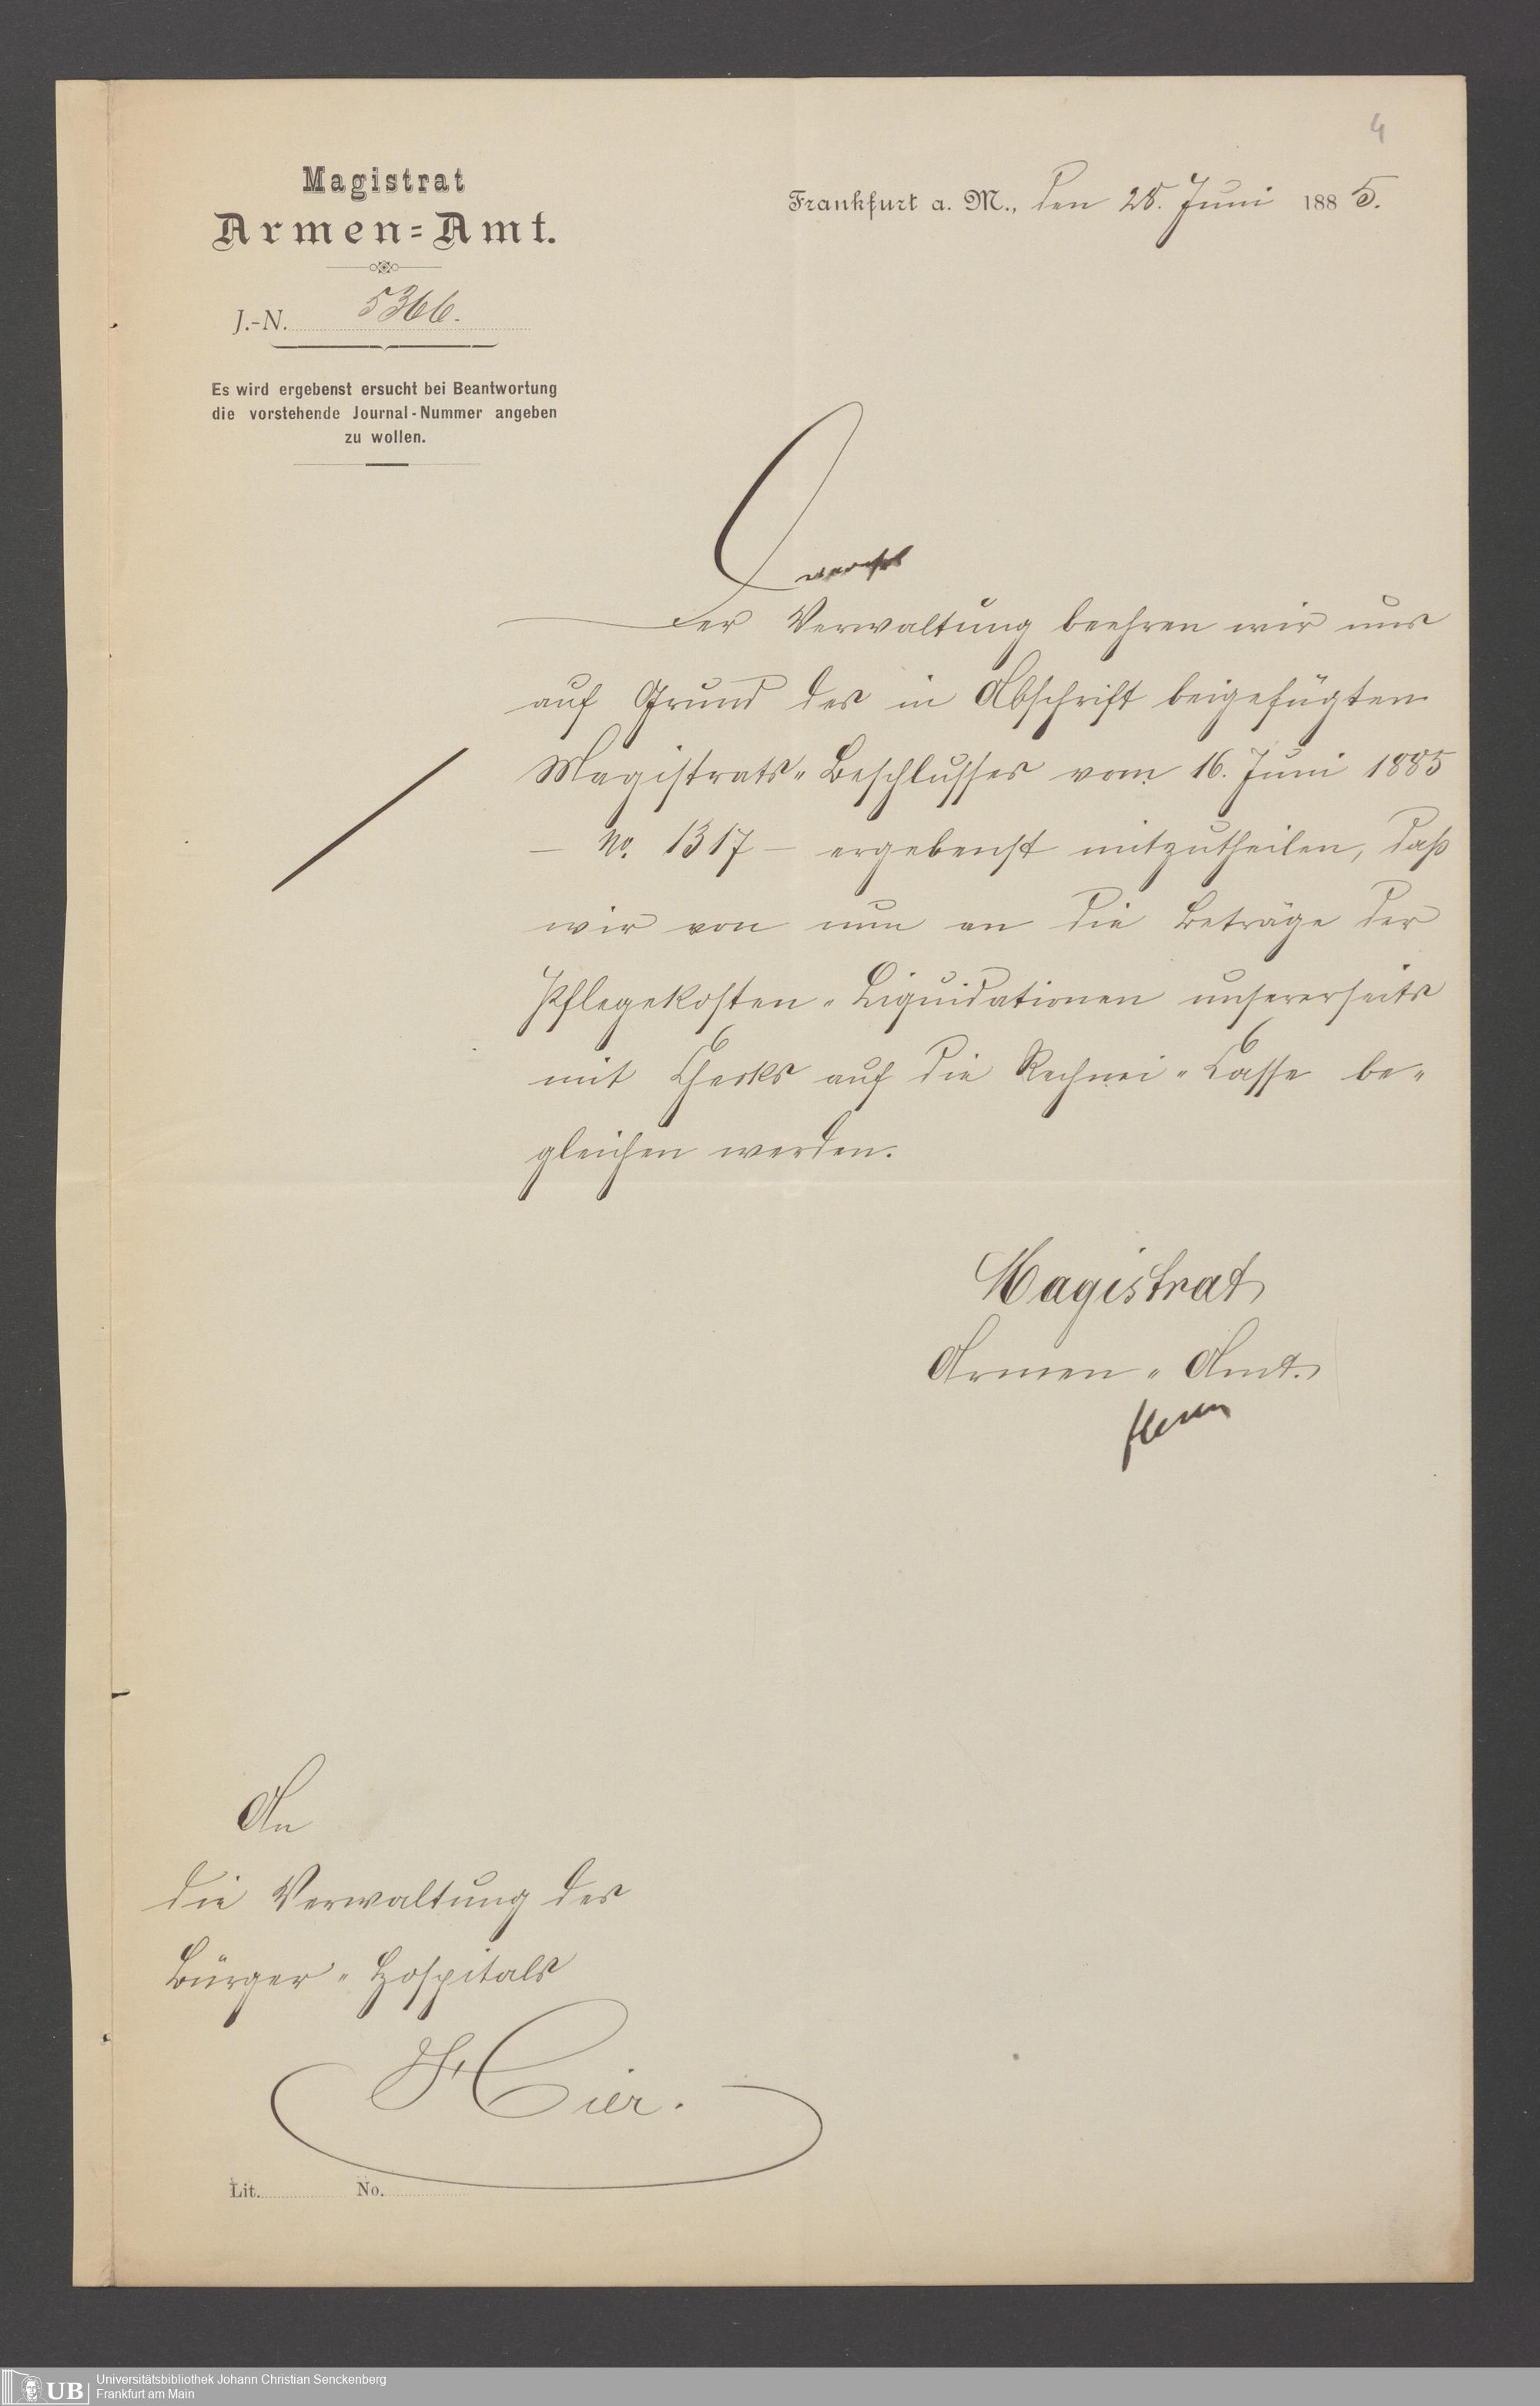 4
Magistrat
Armen=Amt.
J.-N. 5366.
Es wird ergebenst ersucht bei Beantwortung
die vorstehende Journal-Nummer angeben
zu wollen.
Frankfurt a. M., den 28. Juni 1885.
Der Verwaltung beehren wir uns
auf Grund des in Abschrift beigefügten
Magistrats-Beschlusses vom 16. Juni 1885
– No. 1317 – ergebenst mitzutheilen, daß
wir von nun an die Beträge der
Pflegekosten-Liquidationen unsererseits
mit Checks auf die Rechnei-Casse be-
gleichen werden.
Magistrat
Armen-Amt.
An
die Verwaltung des
Bürger-Hospitals
Hier.
Lit. No.
UB
Universitätsbibliothek Johann Christian Senckenberg
Frankfurt am Main